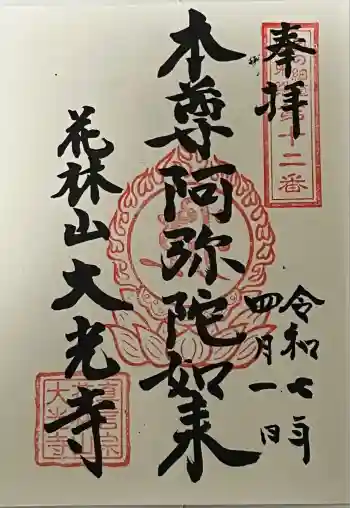 奉拝
第十二番
令和七年
四月一日
本尊阿弥陀如来
花林山大光寺
大光寺